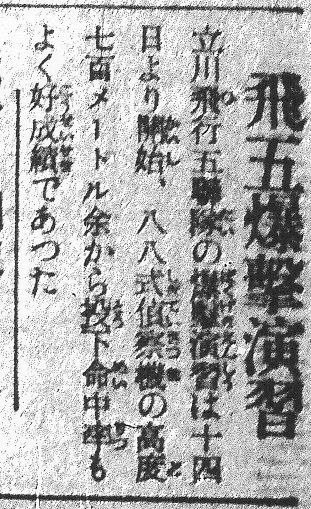 飛五爆撃演習
立川飛行五聯隊の爆撃演習は十四
日より開始、八八式偵察機の高度
七百メートル余から投下命中率も
よく好成績であつた